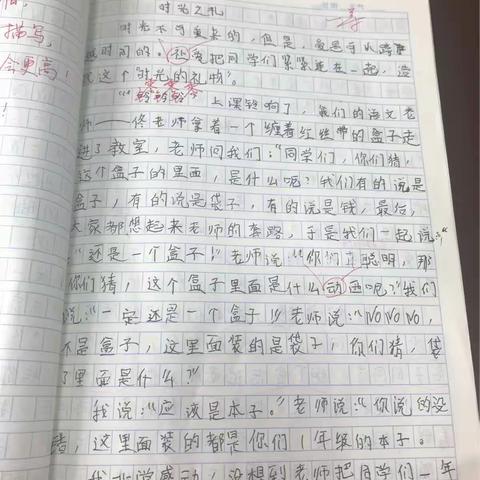 描写,
会更高!
时光之礼
时光不可重来的,但是,
越时间的。让爱把同学们紧紧连在一起,造
这个"时光的礼物"。
"铃铃铃"上课铃响了,我们的语文老
师——佟老师拿着一个缠着红丝带的盒子走
进了教室,老师问我们:"同学们,你们猜,
这个盒子的里面,是什么呢?我们有的说是
盒子,有的说是袋子,有的说是钱,最后,
大家都想起来老师的套路,于是我们一起说:"
"还是一个盒子!"老师说:"你们真聪明,那
你们猜,这个盒子里面是什么动画呢?"我们
说:"一定还是一个盒子!"老师说:"NO NO NO,
不是盒子,这里面装的是袋子,你们猜,袋
子里面是什么?"
我说:"应该是本子。"老师说:"你说的没
错,这里面装的都是你们1年级的本子。
我非常感动,没想到老师把同学们一年